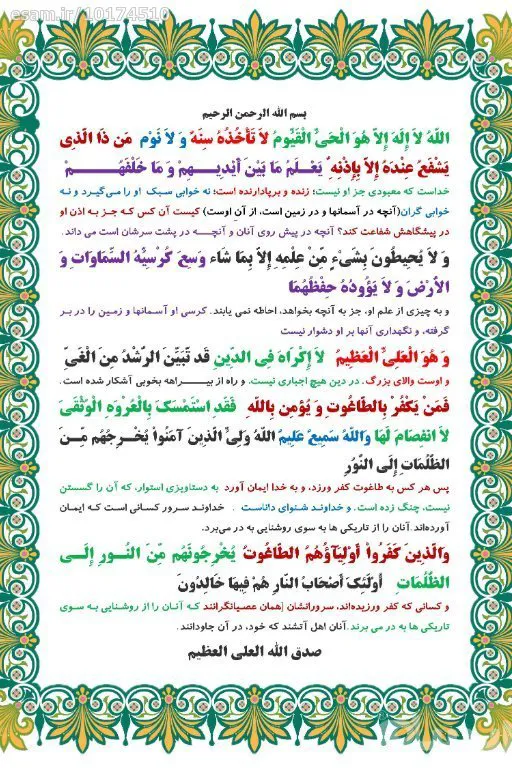 esam.ir/10174510
بسم الله الرحمن الرحیم
اللّهُ لاَ إِلَهَ إِلاَّ هُوَ الْحَیُّ الْقَیُّومُ لاَ تَأْخُذُهُ سِنَةٌ وَ لاَ نَوْم مَن ذَا الَّذِی
یَشْفَعُ عِنْدَهُ إِلاَّ بِإِذْنِهِ یَعْلَمُ مَا بَیْنَ أَیْدِیهِمْ وَ مَا خَلْفَهُمْ
خداست که معبودی جز او نیست؛ زنده و برپادارنده است؛ نه خوابی سبک او را می‌گیرد و نه
خوابی گران(آنچه در آسمانها و در زمین است، از آن اوست) کیست آن کس که جز به اذن او
در پیشگاهش شفاعت کند؟ آنچه در پیش روی آنان و آنچه در پشت سرشان است می داند.
وَ لاَ یُحِیطُونَ بِشَیْءٍ مِّنْ عِلْمِهِ إِلاَّ بِمَا شَاء وَسِعَ کُرْسِیُّهُ السَّمَاوَاتِ وَ
الأَرْضَ وَ لاَ یَؤُودُهُ حِفْظُهُمَا
و به چیزی از علم او، جز به آنچه بخواهد، احاطه نمی یابند. کرسی او آسمانها و زمین را در بر
گرفته، و نگهداری آنها بر او دشوار نیست
وَ هُوَ الْعَلِیُّ الْعَظِیمُ لاَ إِکْرَاهَ فِی الدِّینِ قَد تَّبَیَّنَ الرُّشْدُ مِنَ الْغَیِّ
و اوست والای بزرگ. در دین هیچ اجباری نیست. و راه از بیراهه بخوبی آشکار شده است.
فَمَنْ یَکْفُرْ بِالطَّاغُوتِ وَ یُؤْمِن بِاللّهِ فَقَدِ اسْتَمْسَکَ بِالْعُرْوَهِ الْوُثْقَىَ
لاَ انفِصَامَ لَهَا وَاللّهُ سَمِیعٌ عَلِیمٌ اللّهُ وَلِیُّ الَّذِینَ آمَنُواْ یُخْرِجُهُم مِّنَ
الظُّلُمَاتِ إِلَى النُّوُرِ
پس هر کس به طاغوت کفر ورزد، و به خدا ایمان آورد به دستاویزی استوار، که آن را گسستن
نیست، چنگ زده است. و خداوند شنوای داناست . خداوند سرور کسانی است که ایمان
آورده‌اند. آنان را از تاریکی ها به سوی روشنایی به در می‌برد.
وَالَّذِینَ کَفَرُواْ أَوْلِیَآؤُهُمُ الطَّاغُوتُ یُخْرِجُونَهُم مِّنَ النُّورِ إِلَى
الظُّلُمَاتِ أُوْلَئِکَ أَصْحَابُ النَّارِ هُمْ فِیهَا خَالِدُونَ
و کسانی که کفر ورزیده‌اند، سرورانشان [همان عصیانگرانند که آنان را از روشنایی به سوی
تاریکی ها به در می برند. آنان اهل آتشند که خود، در آن جاودانند.
صدق الله العلی العظیم